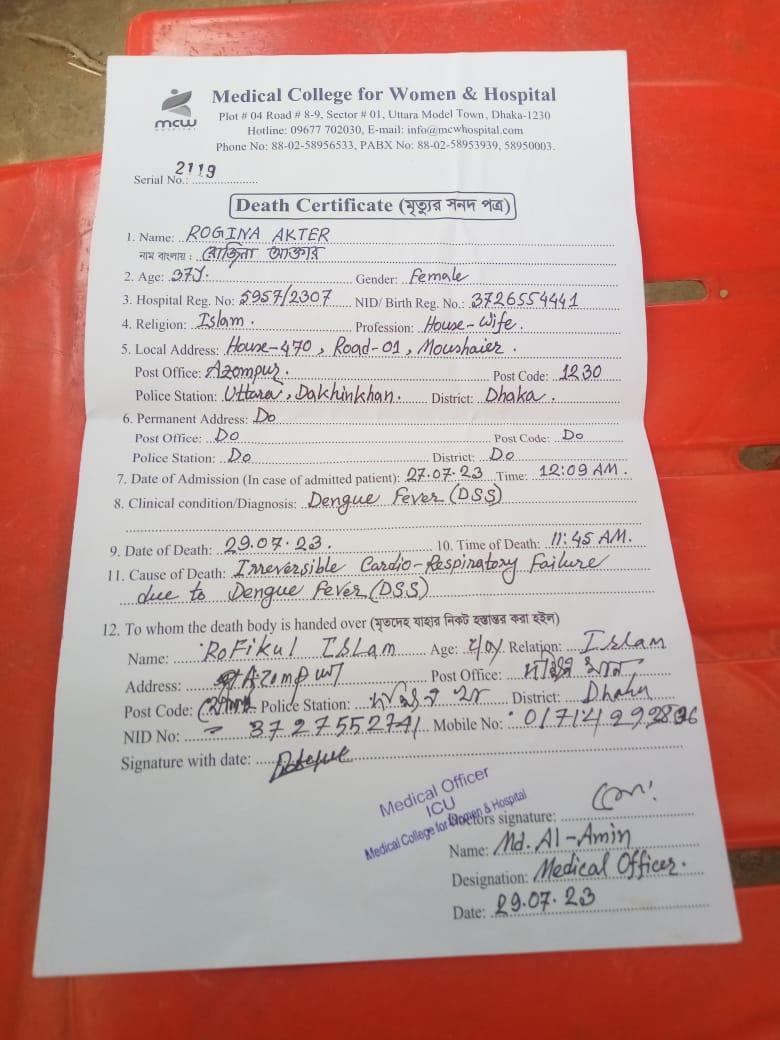 mcw
HOSPITAL
Medical College for Women & Hospital
Plot # 04 Road # 8-9, Sector # 01, Uttara Model Town, Dhaka-1230
Hotline: 09677 702030, E-mail: info@mcwhospital.com
Phone No: 88-02-58956533, PABX No: 88-02-58953939, 58950003.
Serial No.: 2119
Death Certificate (মৃত্যুর সনদ পত্র)
1. Name: ROGINA AKTER
নাম বাংলায় : রোজিনা আক্তার
2. Age: 37y. Gender: Female
3. Hospital Reg. No: 5957/2307 NID/ Birth Reg. No.: 3726554441
4. Religion: Islam. Profession: House-Wife.
5. Local Address: House-470, Road-01, Moushaier.
Post Office: Azompur. Post Code: 1230
Police Station: Uttara, Dakhinkhan. District: Dhaka.
6. Permanent Address: Do
Post Office: Do Post Code: Do
Police Station: Do District: Do
7. Date of Admission (In case of admitted patient): 27.07.23 Time: 12:09 AM.
8. Clinical condition/Diagnosis: Dengue Fever (DSS)
9. Date of Death: 29.07.23. 10. Time of Death: 11:45 AM.
11. Cause of Death: Irreversible Cardio-Respiratory Failure
due to Dengue Fever (DSS)
12. To whom the death body is handed over (মৃতদেহ যাহার নিকট হস্তান্তর করা হইল)
Name: RoFikul ISLam Age: Relation: ISLam
Address: Azompur Post Office:
Post Code: Police Station: District: Dhaka
NID No: 3727552741 Mobile No:
Signature with date:
Medical Officer
ICU
Medical College for Women & Hospital
Doctors signature:
Name: Md. Al-Amin
Designation: Medical Officer.
Date: 29.07.23